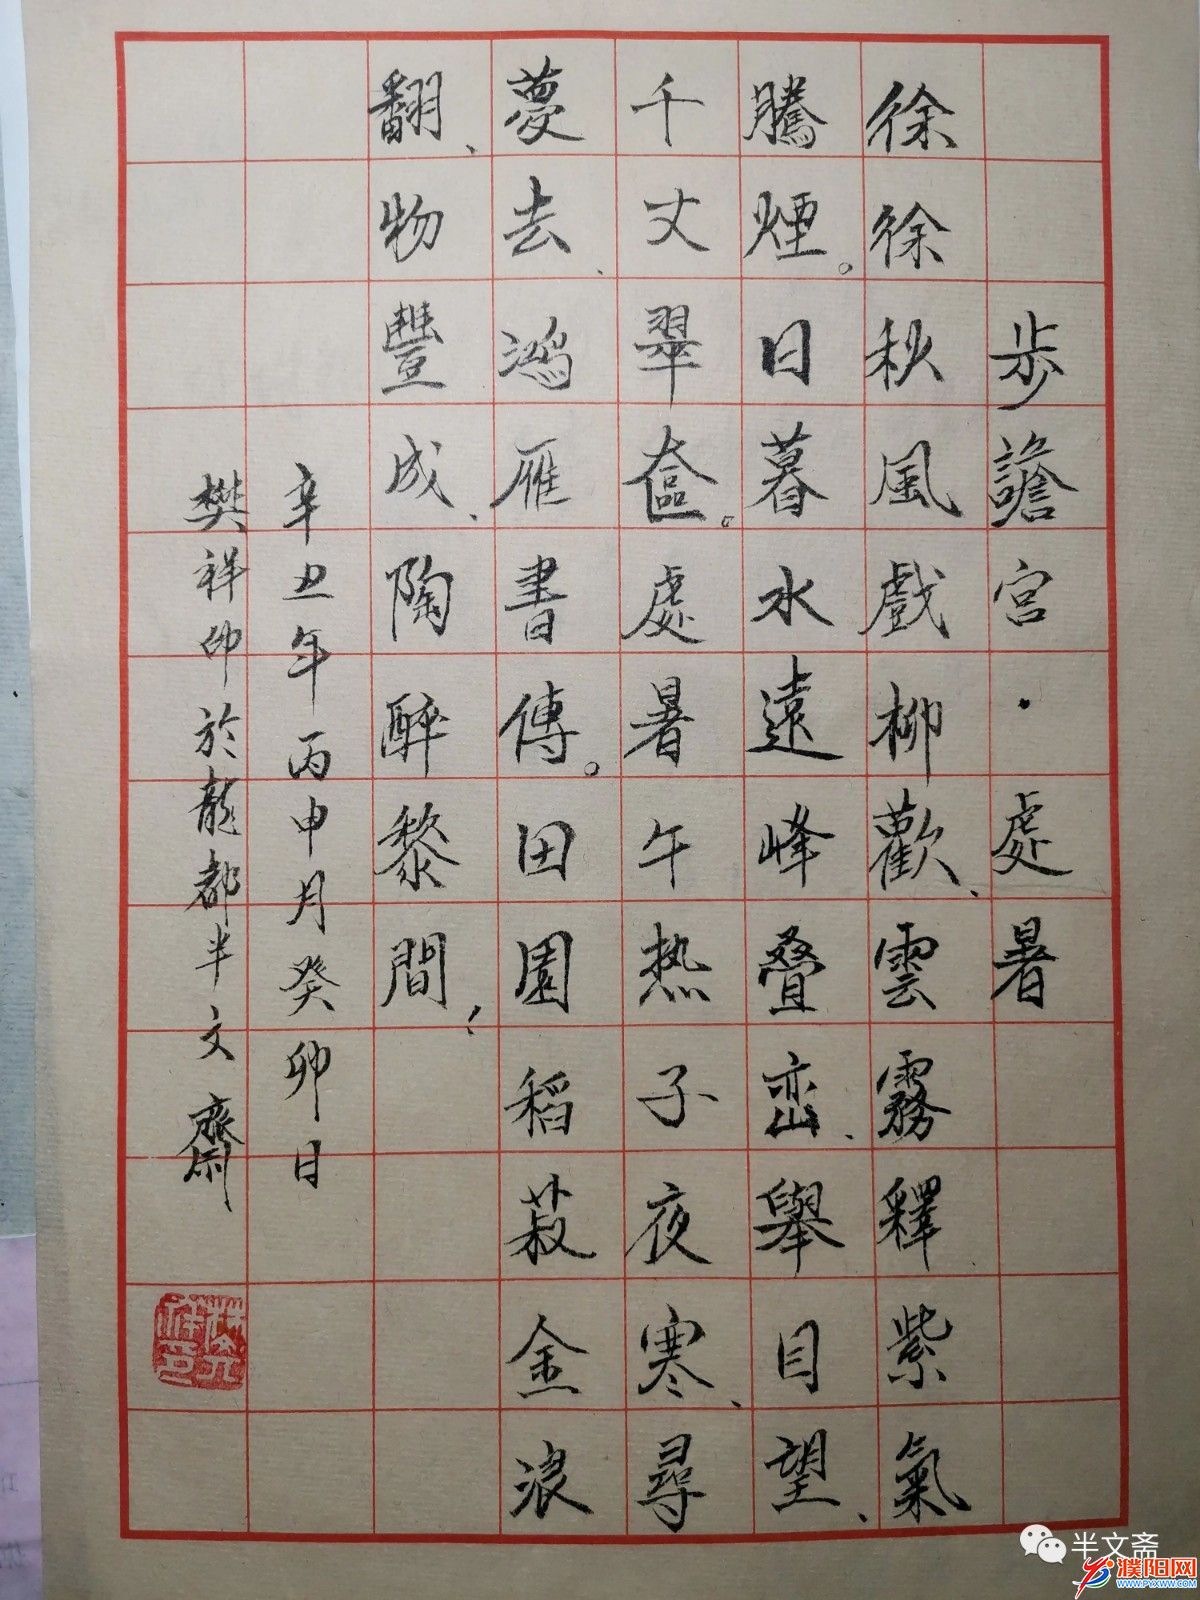 步譫宮·處暑
徐徐秋風戲柳歡、雲霧釋紫氣
騰煙。日暮水遠峰叠峦、舉目望、
千丈翠奩。處暑午热子夜寒、尋
夢去、鴻雁書傳。田園稻菽金浪
翻、物豐成、陶醉黎間！
辛丑年丙申月癸卯日
樊祥於龍都半文齋
半文斋
濮阳网
WWW.PYXWW.COM